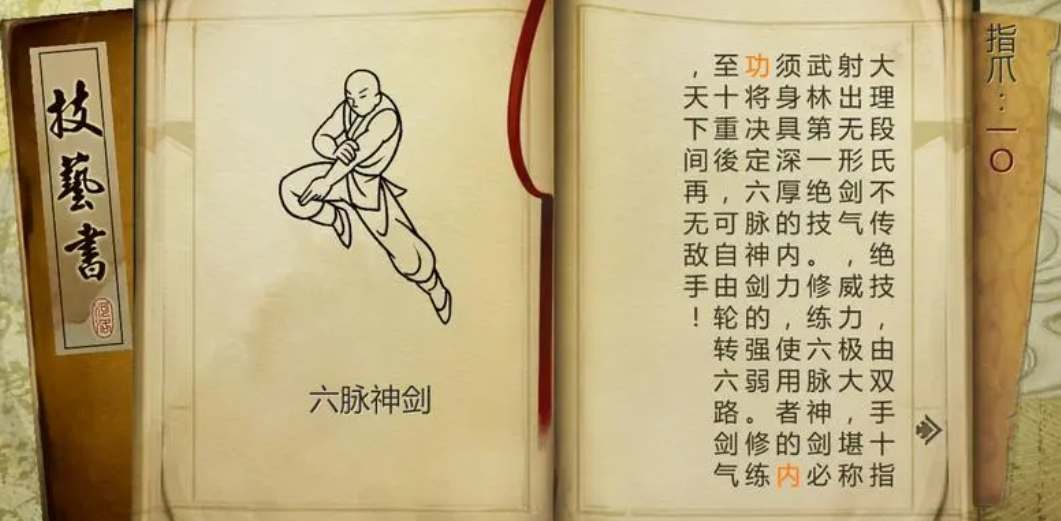 指爪：一〇
大理段氏不传绝技，由双手十指
射出无形剑气，威力极大，堪称
武林第一绝技。修练六脉神剑必
须身具深厚的内力，使用者的内
功将决定六脉神剑的强弱。修练
至十重後，可自由轮转六路剑气
，天下间再无敌手！
六脉神剑
技藝書